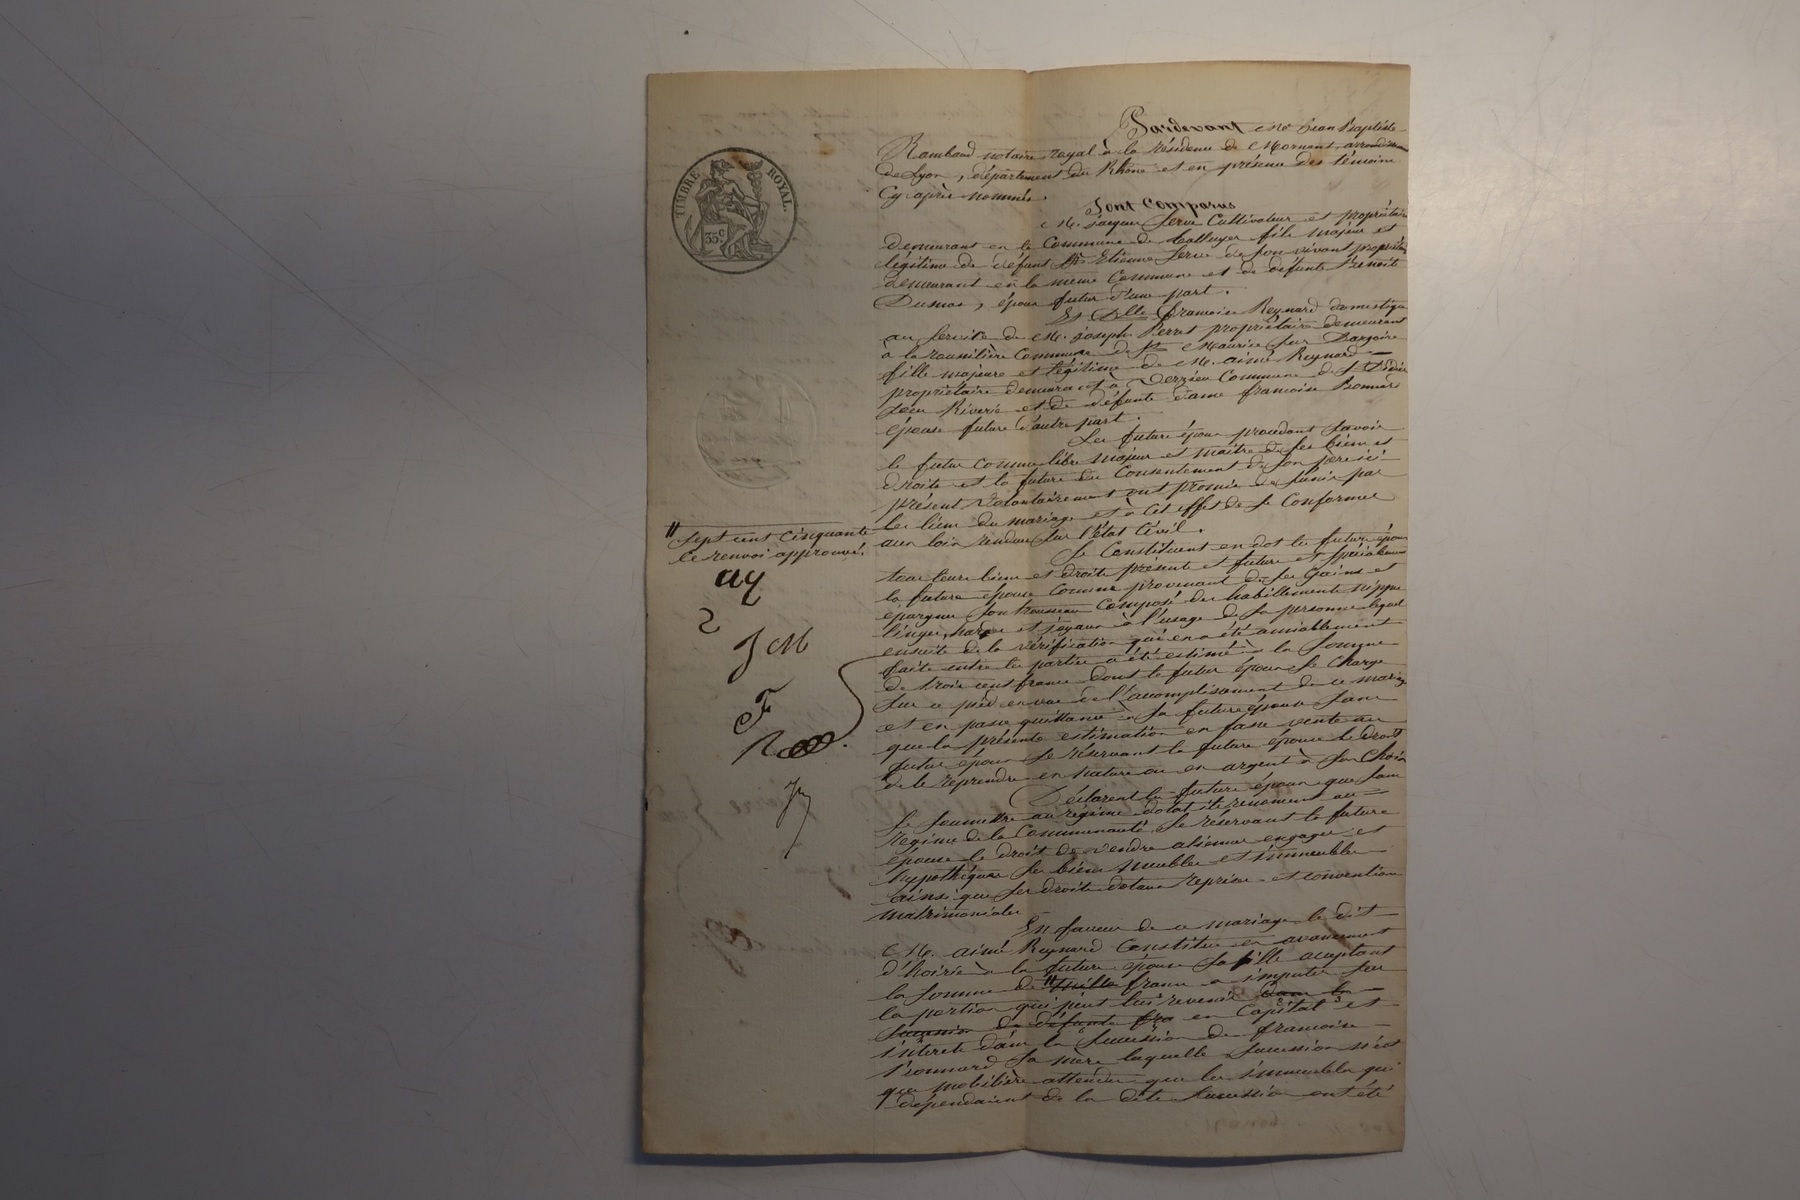 TIMBRE ROYAL
35 c.
Pardevant Me Jean Baptiste
Rambaud notaire royal à la résidence de Mornant, arrondissem
de Lyon, département du Rhône et en présence des témoins
Cy après nommés.
Sont Comparus
M. Jacques Serve Cultivateur et propriétaire
demeurant en la Commune de fils majeur et
légitime de défunt Etienne Serve de son vivant propriétaire
demeurant en la même Commune et de défunte Benoite
Dumas, époux futur d'une part.
Et Dlle francoise Reynard domestique
au service de M. Joseph Perret propriétaire demeurant
à la Commune de St Maurice sur Dargoire
fille majeure et légitime de M. aimé Reynard
propriétaire demeurant à Commune de St Didier
sous Riverie et de défunte dame francoise
épouse future d'autre part.
Les futurs époux procedant savoir
le futur comme libre majeur et maitre de ses biens et
droits et la future du Consentement de son père ici
présent volontairement ont promis de s'unir par
les liens du mariage et à cet effet de se Conformer
aux lois rendues sur l'état Civil.
Se Constituent en dot les futurs époux
tous leurs biens et droits présents et futurs et spécialement
la future épouse comme provenant de ses gains et
épargnes son trousseau composé des habillements nippes
linges, hardes et joyaux à l'usage de sa personne lequel
ensuite de la vérification qui en a été amiablement
faite entre les parties a été estimé à la somme
de trois cent francs dont le futur époux se charge
sur ce pied en vue de l'acomplissement de ce mariage
et en passe quittance à sa future épouse sans
que la présente estimation en fasse vente au
futur époux se réservant la future épouse le droit
de le reprendre en nature ou en argent à son Choix
Déclarent les futurs époux que sans
se soumettre au régime dotal ils renoncent au
régime de la Communauté, se réservant la future
épouse le droit de vendre aliéner engager et
hypothéquer ses biens meubles et immeubles
ainsi que ses droits dotaux reprises et conventions
matrimoniales
En faveur de ce mariage le dit
M. aimé Reynard Constitue en avancement
d'hoirie à la future épouse sa fille aceptant
la somme de " mille francs à imputer sur
la portion qui peut lui revenir dans la
succession de défunte fra en Capital et
intérets dans la succession de francoise
sa mère laquelle succession n'est
que mobilière attendu que les immeubles qui
dépendaient de la dite succession ont été
" sept cent cinquante
le renvoi approuvé.
JM
F